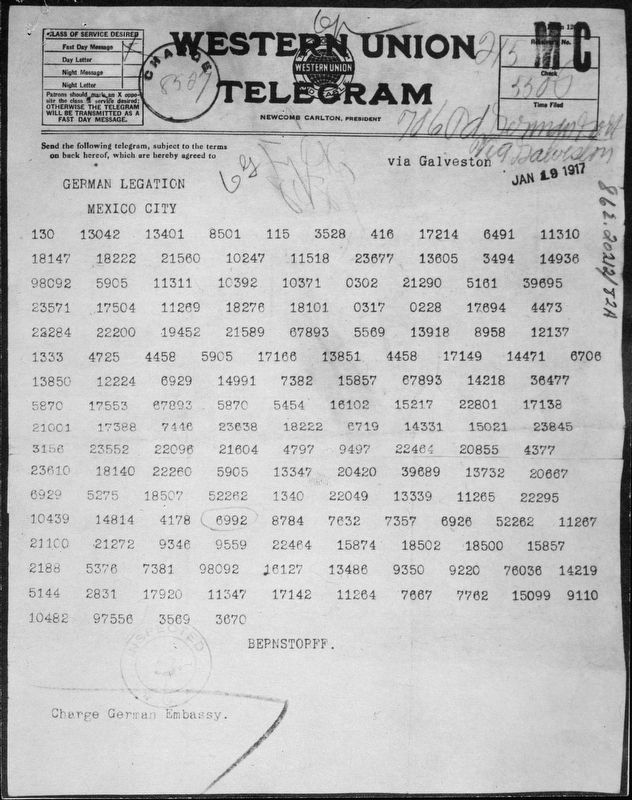 CLASS OF SERVICE DESIRED
Fast Day Message
Day Letter
Night Message
Night Letter
Patrons should mark an X oppo-
site the class of service desired;
OTHERWISE THE TELEGRAM
WILL BE TRANSMITTED AS A
FAST DAY MESSAGE.
CHARGE
WESTERN UNION
WESTERN UNION
TELEGRAM
NEWCOMB CARLTON, PRESIDENT
MC
Receiver's No.
Check
Time Filed
Send the following telegram, subject to the terms
on back hereof, which are hereby agreed to
via Galveston
via Galveston
JAN 19 1917
GERMAN LEGATION
MEXICO CITY
862.20212/82A
130 13042 13401 8501 115 3528 416 17214 6491 11310
18147 18222 21560 10247 11518 23677 13605 3494 14936
98092 5905 11311 10392 10371 0302 21290 5161 39695
23571 17504 11269 18276 18101 0317 0228 17694 4473
22284 22200 19452 21589 67893 5569 13918 8958 12137
1333 4725 4458 5905 17166 13851 4458 17149 14471 6706
13850 12224 6929 14991 7382 15857 67893 14218 36477
5870 17553 67893 5870 5454 16102 15217 22801 17138
21001 17388 7446 23638 18222 6719 14331 15021 23845
3156 23552 22096 21604 4797 9497 22464 20855 4377
23610 18140 22260 5905 13347 20420 39689 13732 20667
6929 5275 18507 52262 1340 22049 13339 11265 22295
10439 14814 4178 6992 8784 7632 7357 6926 52262 11267
21100 21272 9346 9559 22464 15874 18502 18500 15857
2188 5376 7381 98092 16127 13486 9350 9220 76036 14219
5144 2831 17920 11347 17142 11264 7667 7762 15099 9110
10482 97556 3569 3670
BEPNSTOPFF.
INSPECTED
Charge German Embassy.